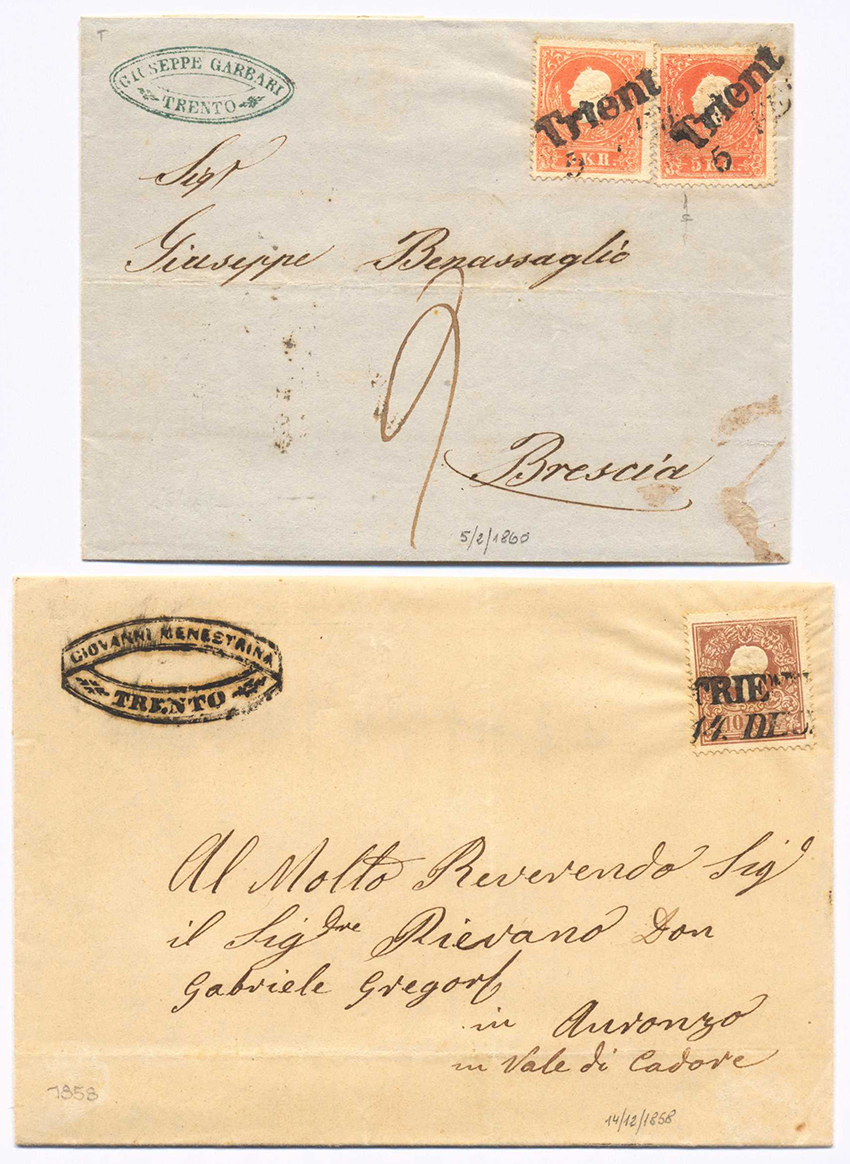 T
GIUSEPPE GARBARI
TRENTO
Trient
5
5 KR.
Trient
5 FEB
5 KR.
Sigr
Giuseppe Benassaglio
9
Brescia
5/2/1860
GIOVANNI MENESTRINA
TRENTO
TRIE
14. DEC.
10
Al Molto Reverendo Sigr
il Sigre Pievano Don
Gabriele Gregori
in Auronzo
in Vale di Cadore
1858
14/12/1858